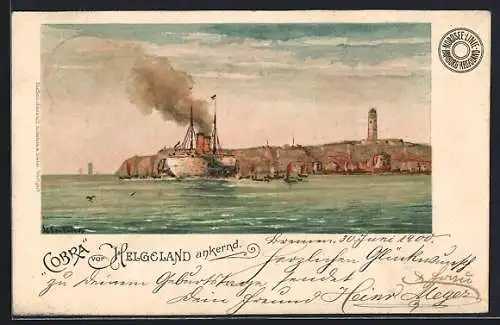 NORDSEE-LINIE
HAMBURG-HELGOLAND
"COBRA" vor HELGOLAND ankernd.
Bremen 30 Juni 1900.
Herzlichen Glückwunsch
zu Deinem Geburtstage sendet
Dein Freund Heinr Meyer
& Frau